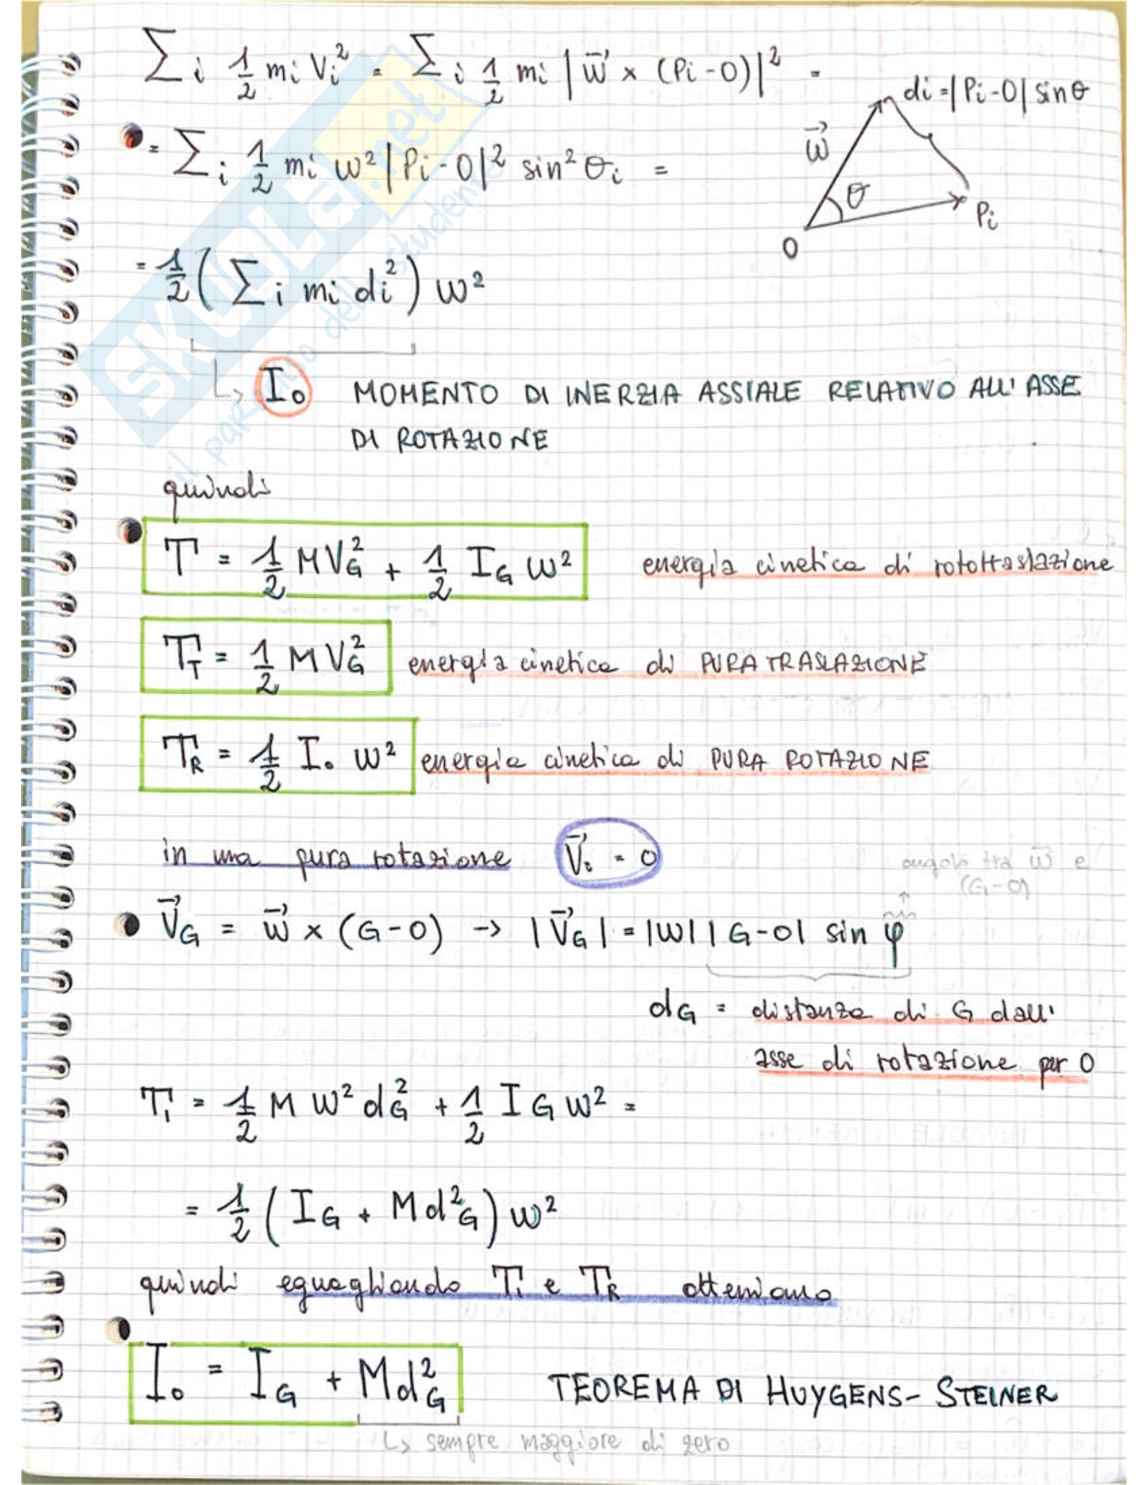 ∑i 1/2 mi Vi² = ∑i 1/2 mi |w⃗ × (Pi-O)|² =
di = |Pi-O| sinθ
w⃗
θ
Pi
O
= ∑i 1/2 mi w² |Pi-O|² sin²θi =
= 1/2 (∑i mi di²) w²
↳ Io MOMENTO DI INERZIA ASSIALE RELATIVO ALL'ASSE
DI ROTAZIONE
quindi
T = 1/2 MVG² + 1/2 IG w² energia cinetica di rototraslazione
TT = 1/2 MVG² energia cinetica di PURA TRASLAZIONE
TR = 1/2 Io w² energia cinetica di PURA ROTAZIONE
in una pura rotazione V⃗o = 0
angolo tra w⃗ e
(G-O)
V⃗G = w⃗ × (G-O) → |V⃗G| = |w| |G-O| sin φ
dG = distanza di G dall'
asse di rotazione per O
T1 = 1/2 M w² dG² + 1/2 IG w² =
= 1/2 (IG + Md²G) w²
quindi eguagliando T1 e TR otteniamo
Io = IG + MdG² TEOREMA DI HUYGENS-STEINER
↳ sempre maggiore di zero
SKUOLA.net
il paradiso dello studente